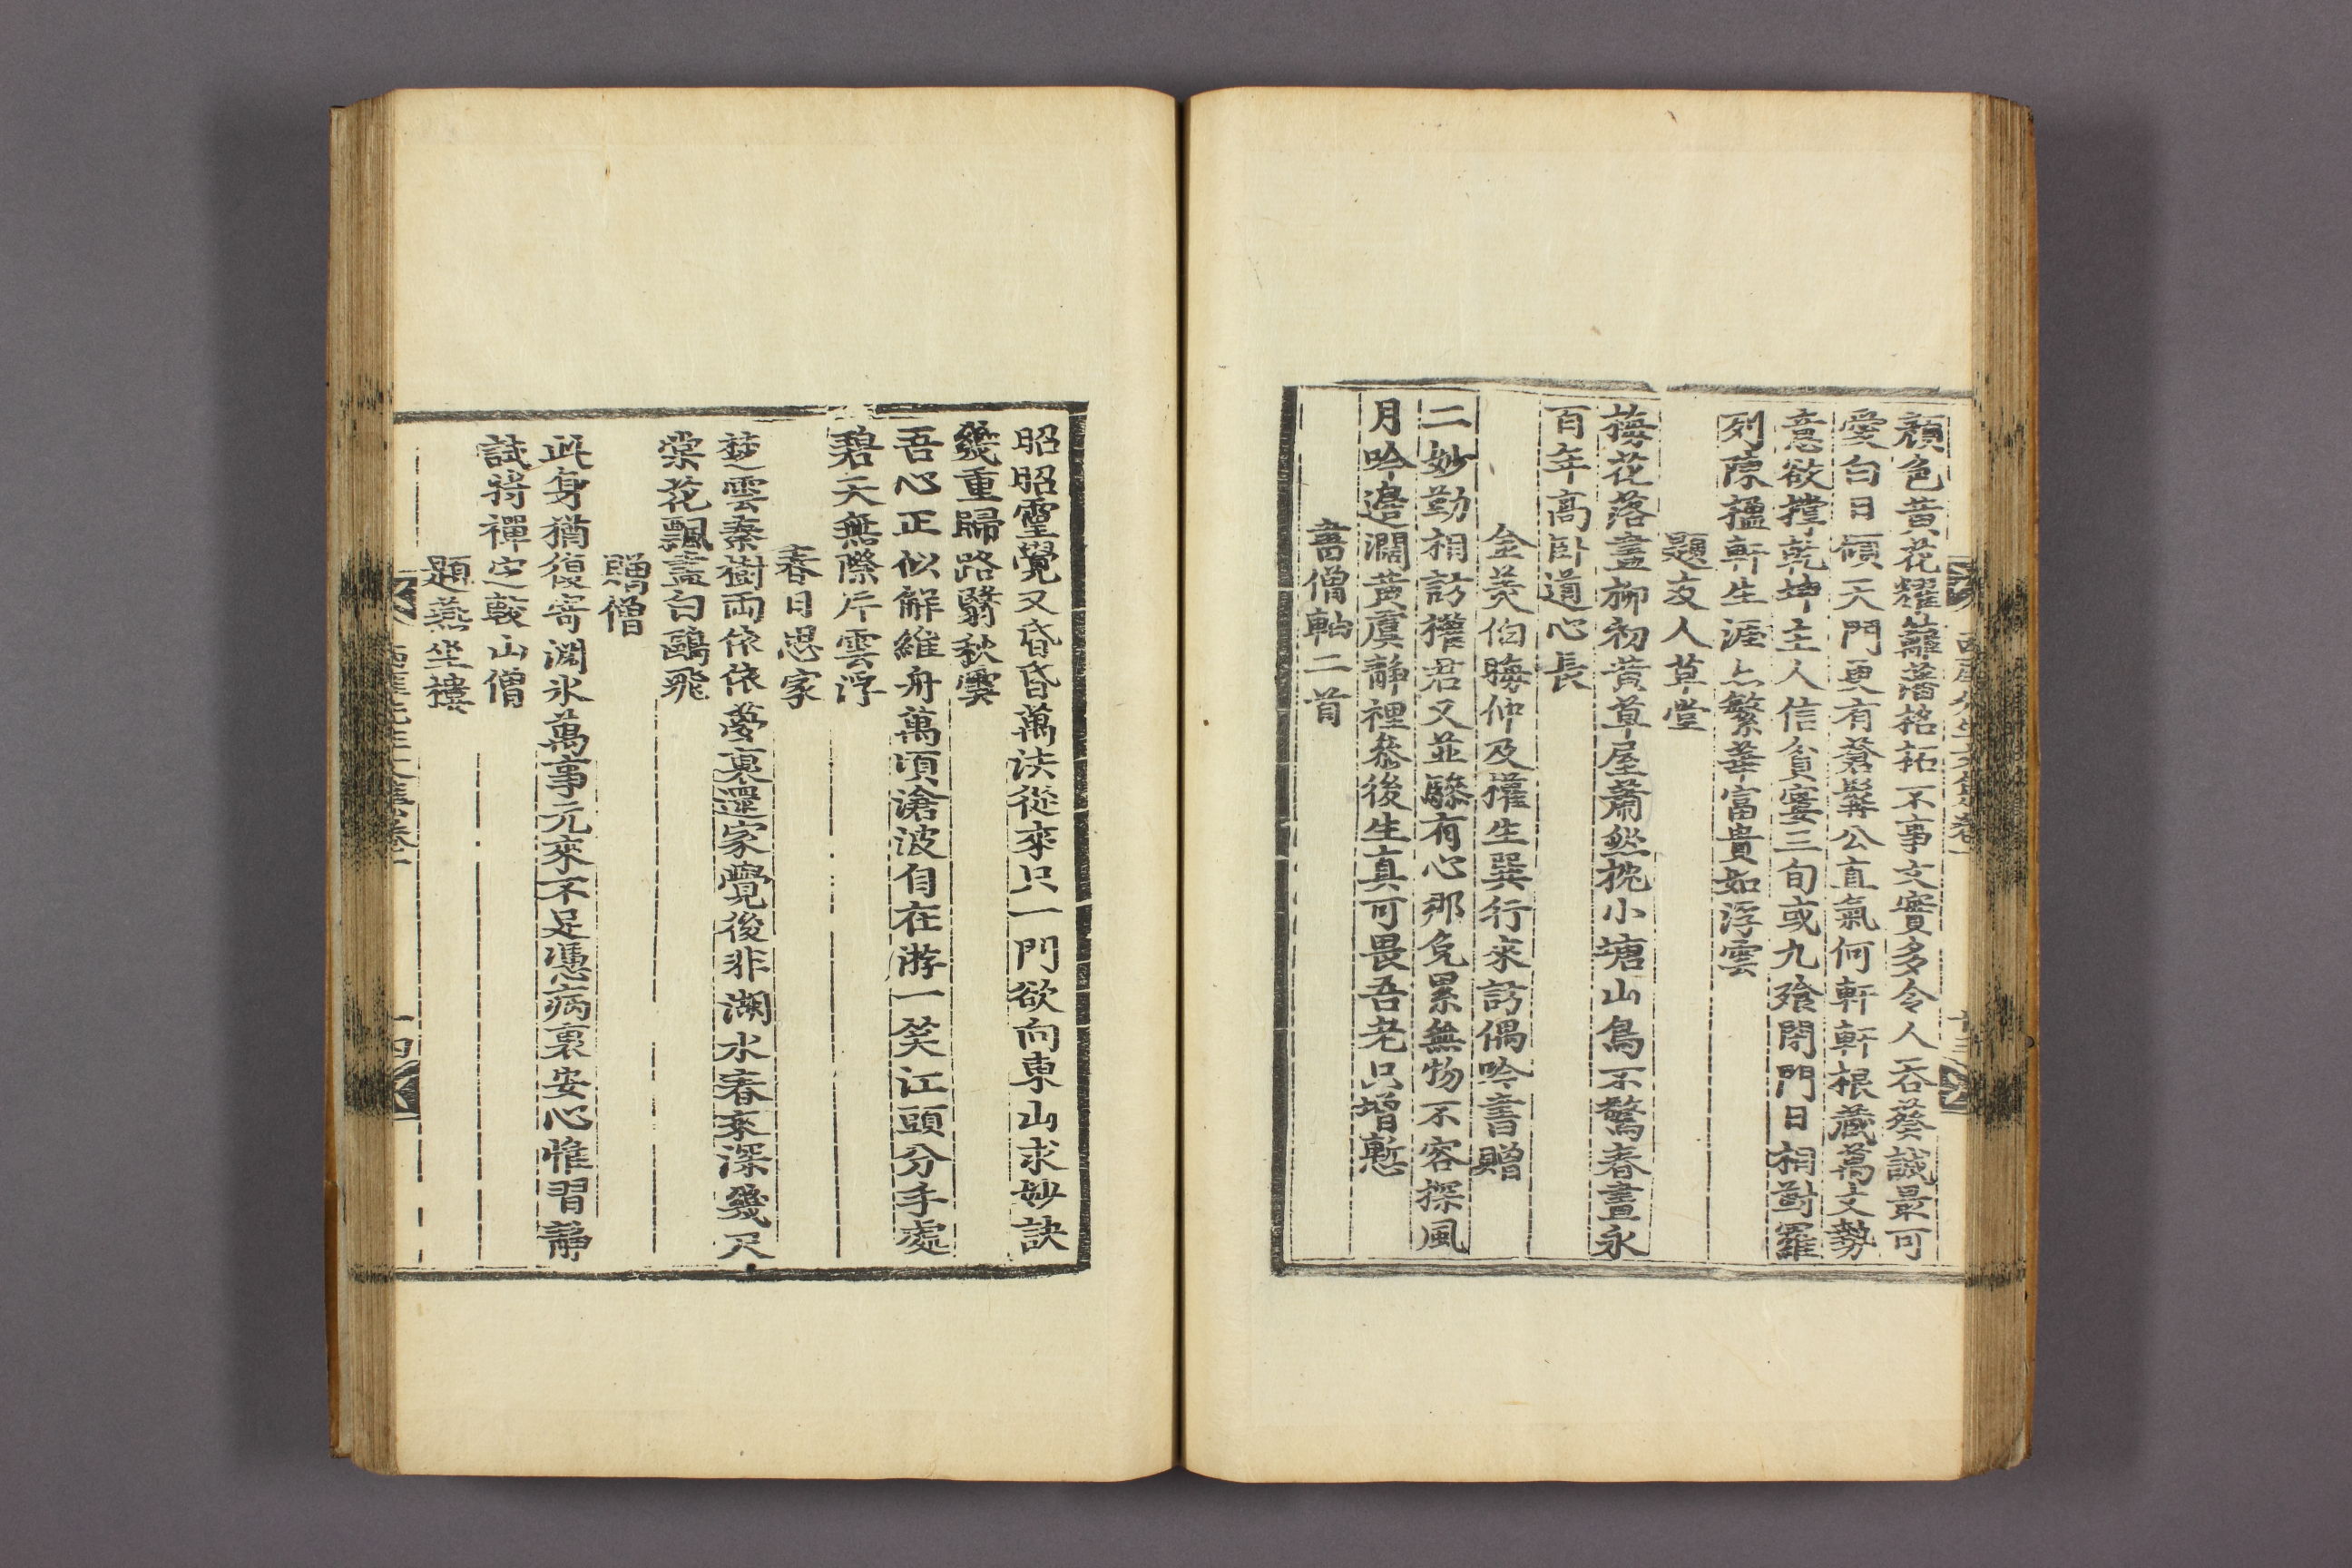 顔色黃花耀籬落格拓不事文實多令人吞葵誠最可
愛白日傾天門更有蒼髯公直氣何軒軒根藏萬丈勢
意欲撑乾坤主人信貧寠三旬或九飱閉門日相對羅
列陳楹軒生涯亦繁華富貴如浮雲
題友人草堂
梅花落盡柳初黃草屋蕭然挽小塘山鳥不驚春晝永
百年高卧道心長
金羙伯晦仲及權生巽行來訪偶吟書贈
二妙勤相訪權君又並驂有心那免累無物不容探風
月吟邉濶黃虞靜裡叅後生真可畏吾老只增慙
書僧軸二首
昭昭霊覺又昏昏萬法從來只一門欲向東山求妙訣
幾重歸路翳秋雲
吾心正似解維舟萬頃滄波自在游一笑江頭分手處
碧天無際片雲浮
春日思家
楚雲秦樹兩依依夢裏還家覺後非湖水春來深幾尺
棠花飄盡白鷗飛
贈僧
此身猶復寄淵氷萬事元來不足憑病裏安心惟習靜
試將禪定較山僧
題燕坐樓